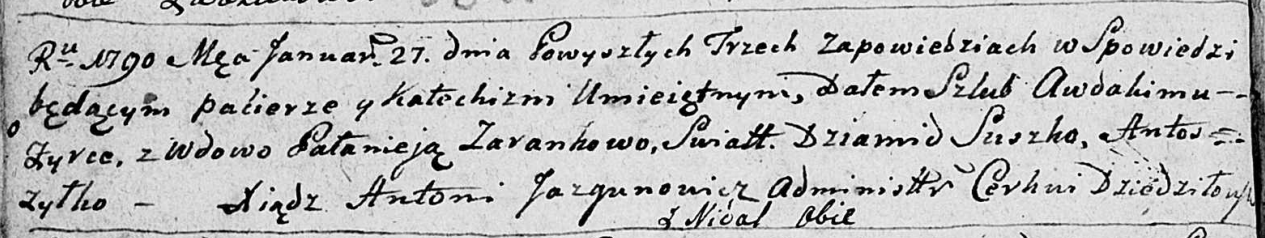 Rᵘ 1790 Męca Januarῥ 27. dnia Powyszłych Trzech Zapowiedziach w Spowiedzi
będącym pacierze y Katechizm Umieiętnym, Dałem Szlub Awdakimu --
Żyrce, z Wdowo Pałanieją Zarankowo, Swiatt. Dziamid Suszko, Antos =
Żytko - Xiądz Antoni Jazgunowicz Administtr Cerkwi Dziedziłow
z Nidal Obie